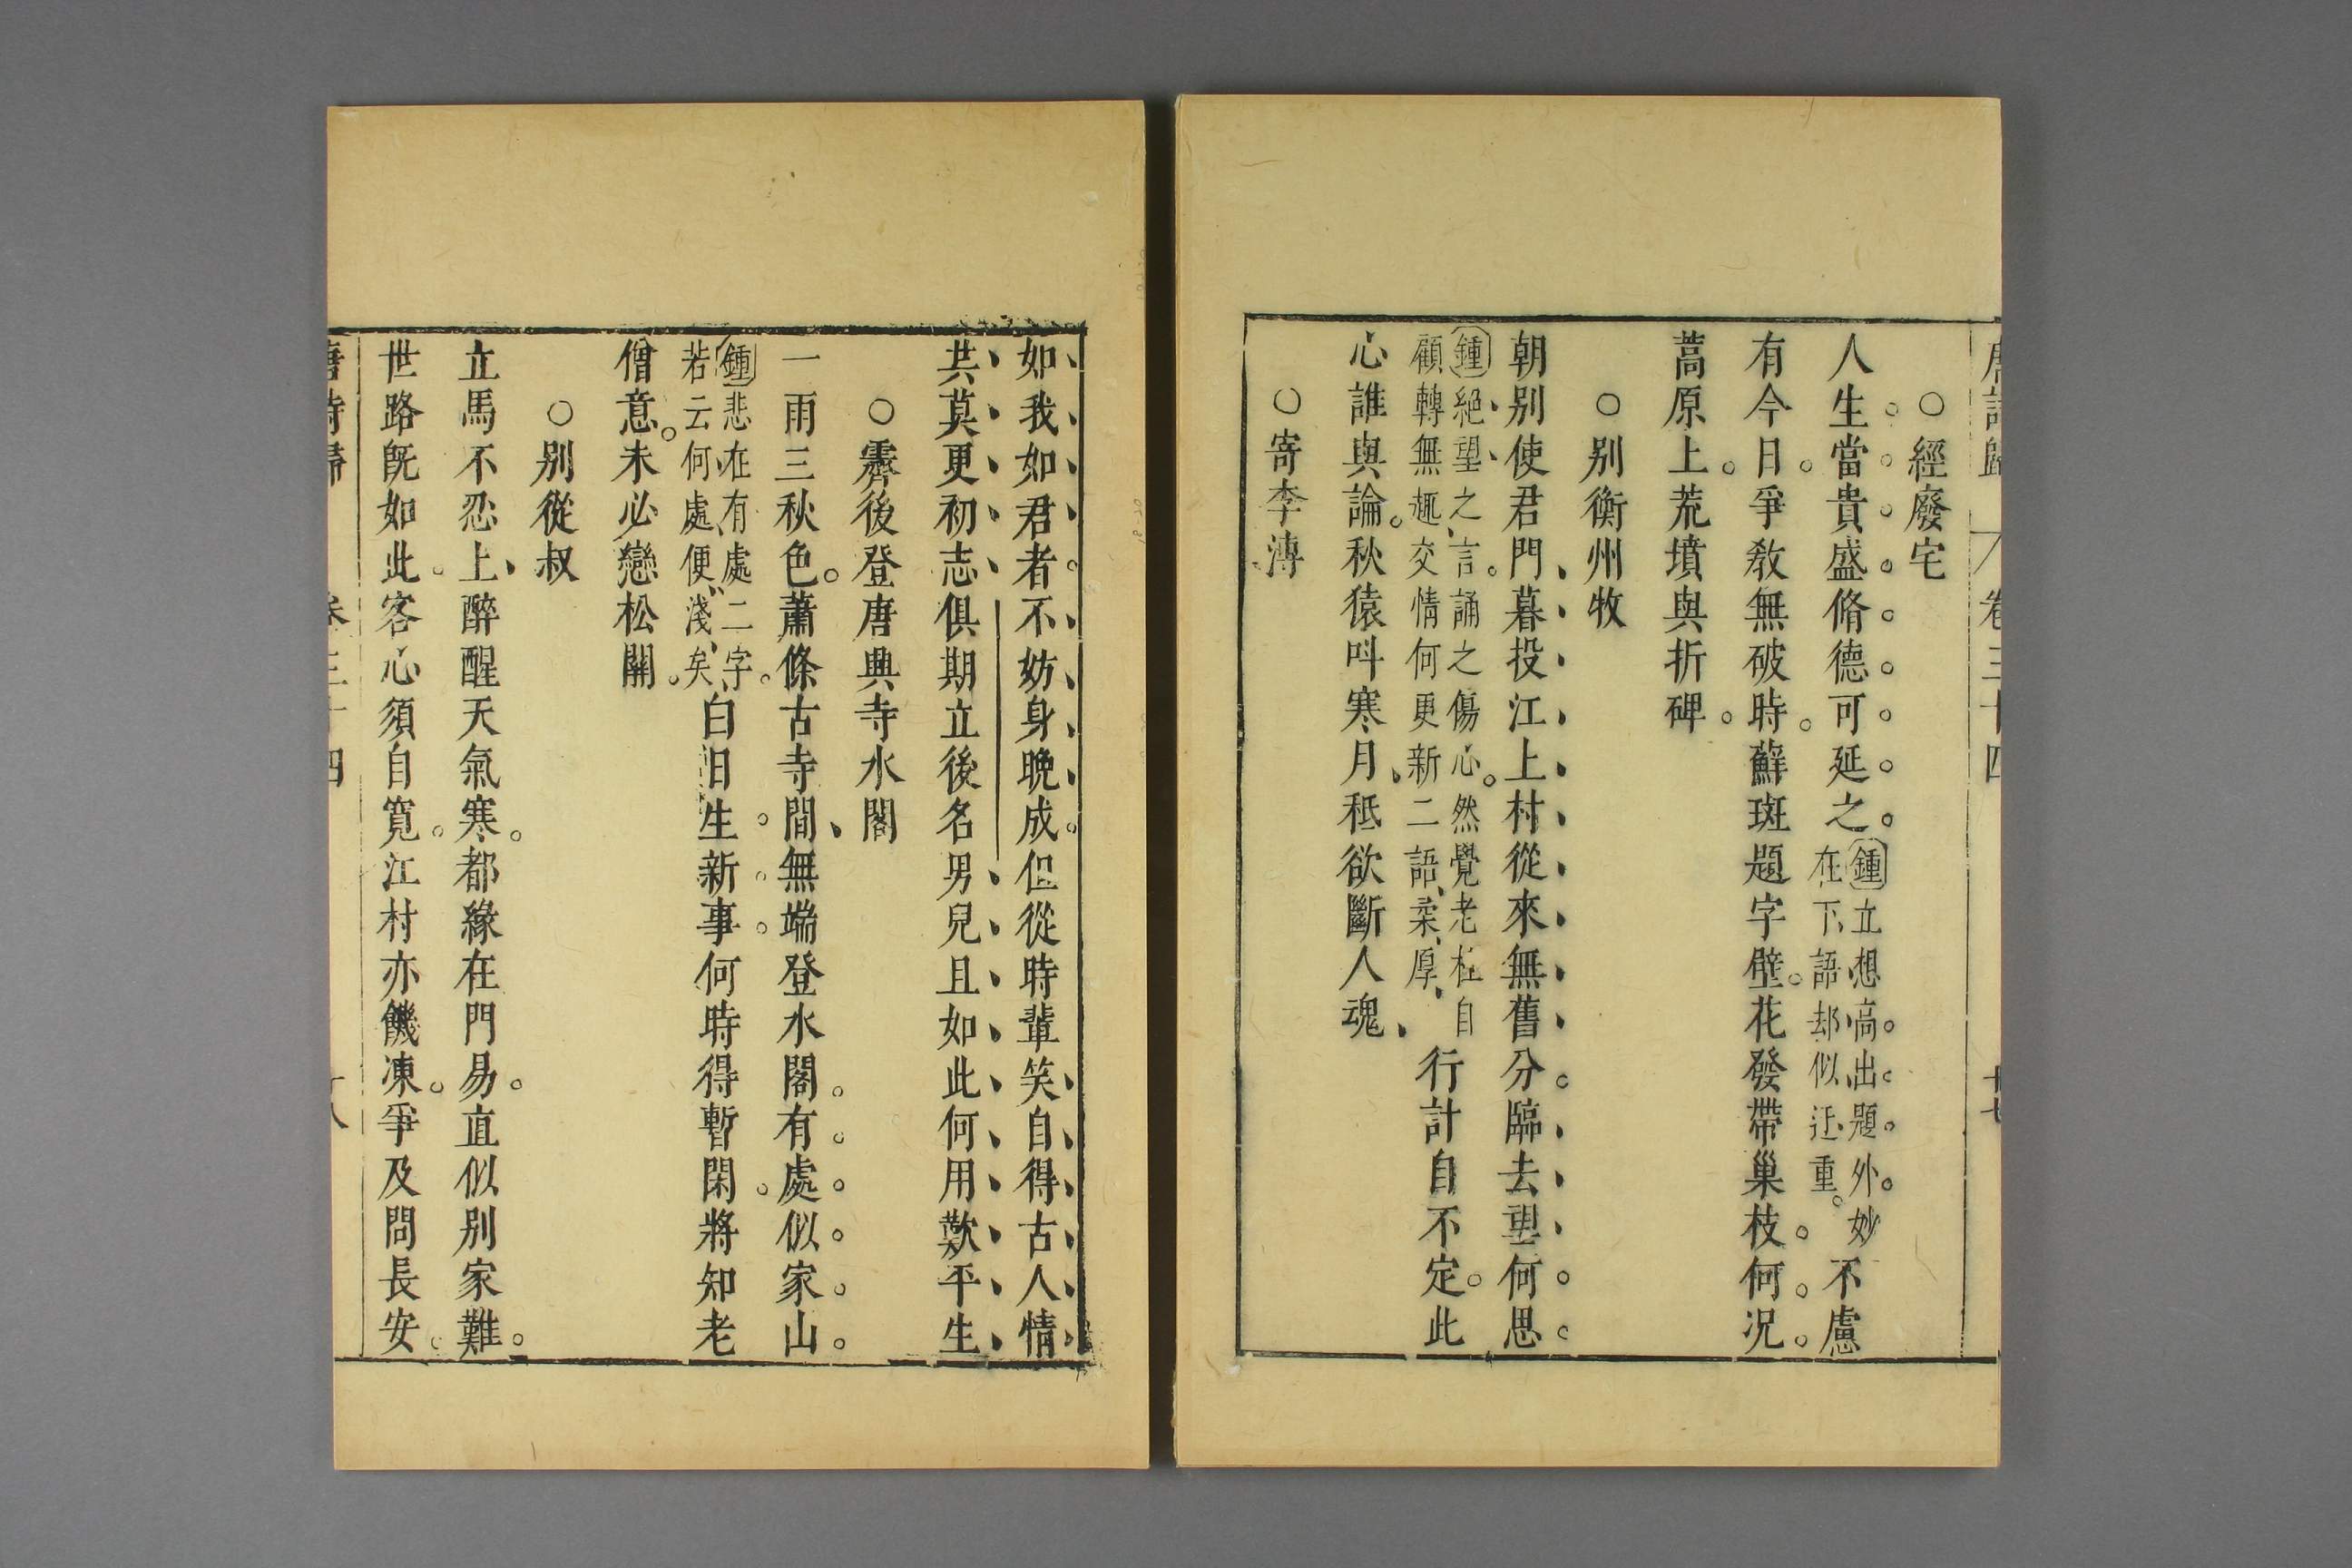 唐詩歸 卷三十四 十七
○經廢宅
人生當貴盛脩德可延之鍾立想高出題外妙在下語却似迂重不慮
有今日爭教無破時蘚斑題字壁花發帶巢枝何況
蒿原上荒墳與折碑
○別衡州牧
朝別使君門暮投江上村從來無舊分臨去望何思
鍾絕望之言誦之傷心然覺老杜自
顧轉無趣交情何更新二語柔厚
行計自不定此
心誰與論秋猿呌寒月秪欲斷人魂
○寄李溥
如我如君者不妨身晚成但從時輩笑自得古人情
共莫更初志俱期立後名男兒且如此何用歎平生
○霽後登唐興寺水閣
一雨三秋色蕭條古寺間無端登水閣有處似家山
鍾悲在有處二字
若云何處便淺矣
白日生新事何時得暫閑將知老
僧意未必戀松關
○別從叔
立馬不忍上醉醒天氣寒都緣在門易直似別家難
世路旣如此客心須自寬江村亦饑凍爭及問長安
唐詩歸 卷三十四 十八